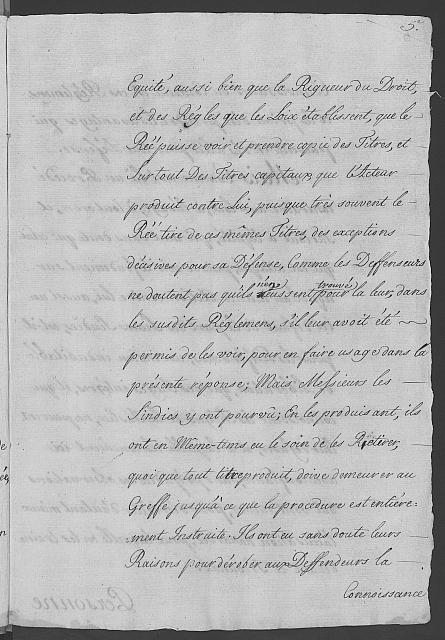 3.
Equité, aussi bien que la Rigueur du Droit,
et des Régles que les Loix établissent, que le
Reé puisse voir et prendre copie des Titres, et
Surtout Des Titres capitaux que l'Acteur
produit contre Lui, puisque très souvent le
Reé tire de ces mêmes Titres, des exceptions
décisives pour sa Défense, Comme les Deffenseurs
ne doutent pas qu'ils n'en eussent trouvé pour la leur, dans
les susdits Réglemens, s'il leur avoit été
permis de les voir, pour en faire usage dans la
présente réponse; Mais Messieurs les
Sindics y ont pourvû; En les produisant, ils
ont en Même-tems eu le soin de les Retirer,
quoi que tout titre produit, doive demeurer au
Greffe jusqu'à ce que la procedure est entière-
ment Instruite. Ils ont eu sans doute leurs
Raisons pour dérober aux Deffendeurs la
Connoissance